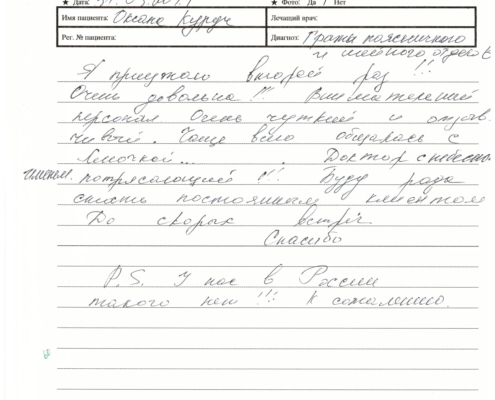 ★ Дата: ★ Фото: Да / Нет
Имя пациента: Оксана Лечащий врач:
Рег. № пациента: Диагноз: поясничного
и шейного отдел
Я приезжаю второй раз !!!
Очень довольна !!! Внимательный
персонал Очень чуткий и отзыв
чивый. Чаще всего общалась с
Леночкой... . Доктор с
потрясающий !!! Буду рада
стать постоянным клиентом
До скорых встреч.
Спасибо
P.S. У нас в России
такого нет !!! К сожалению.